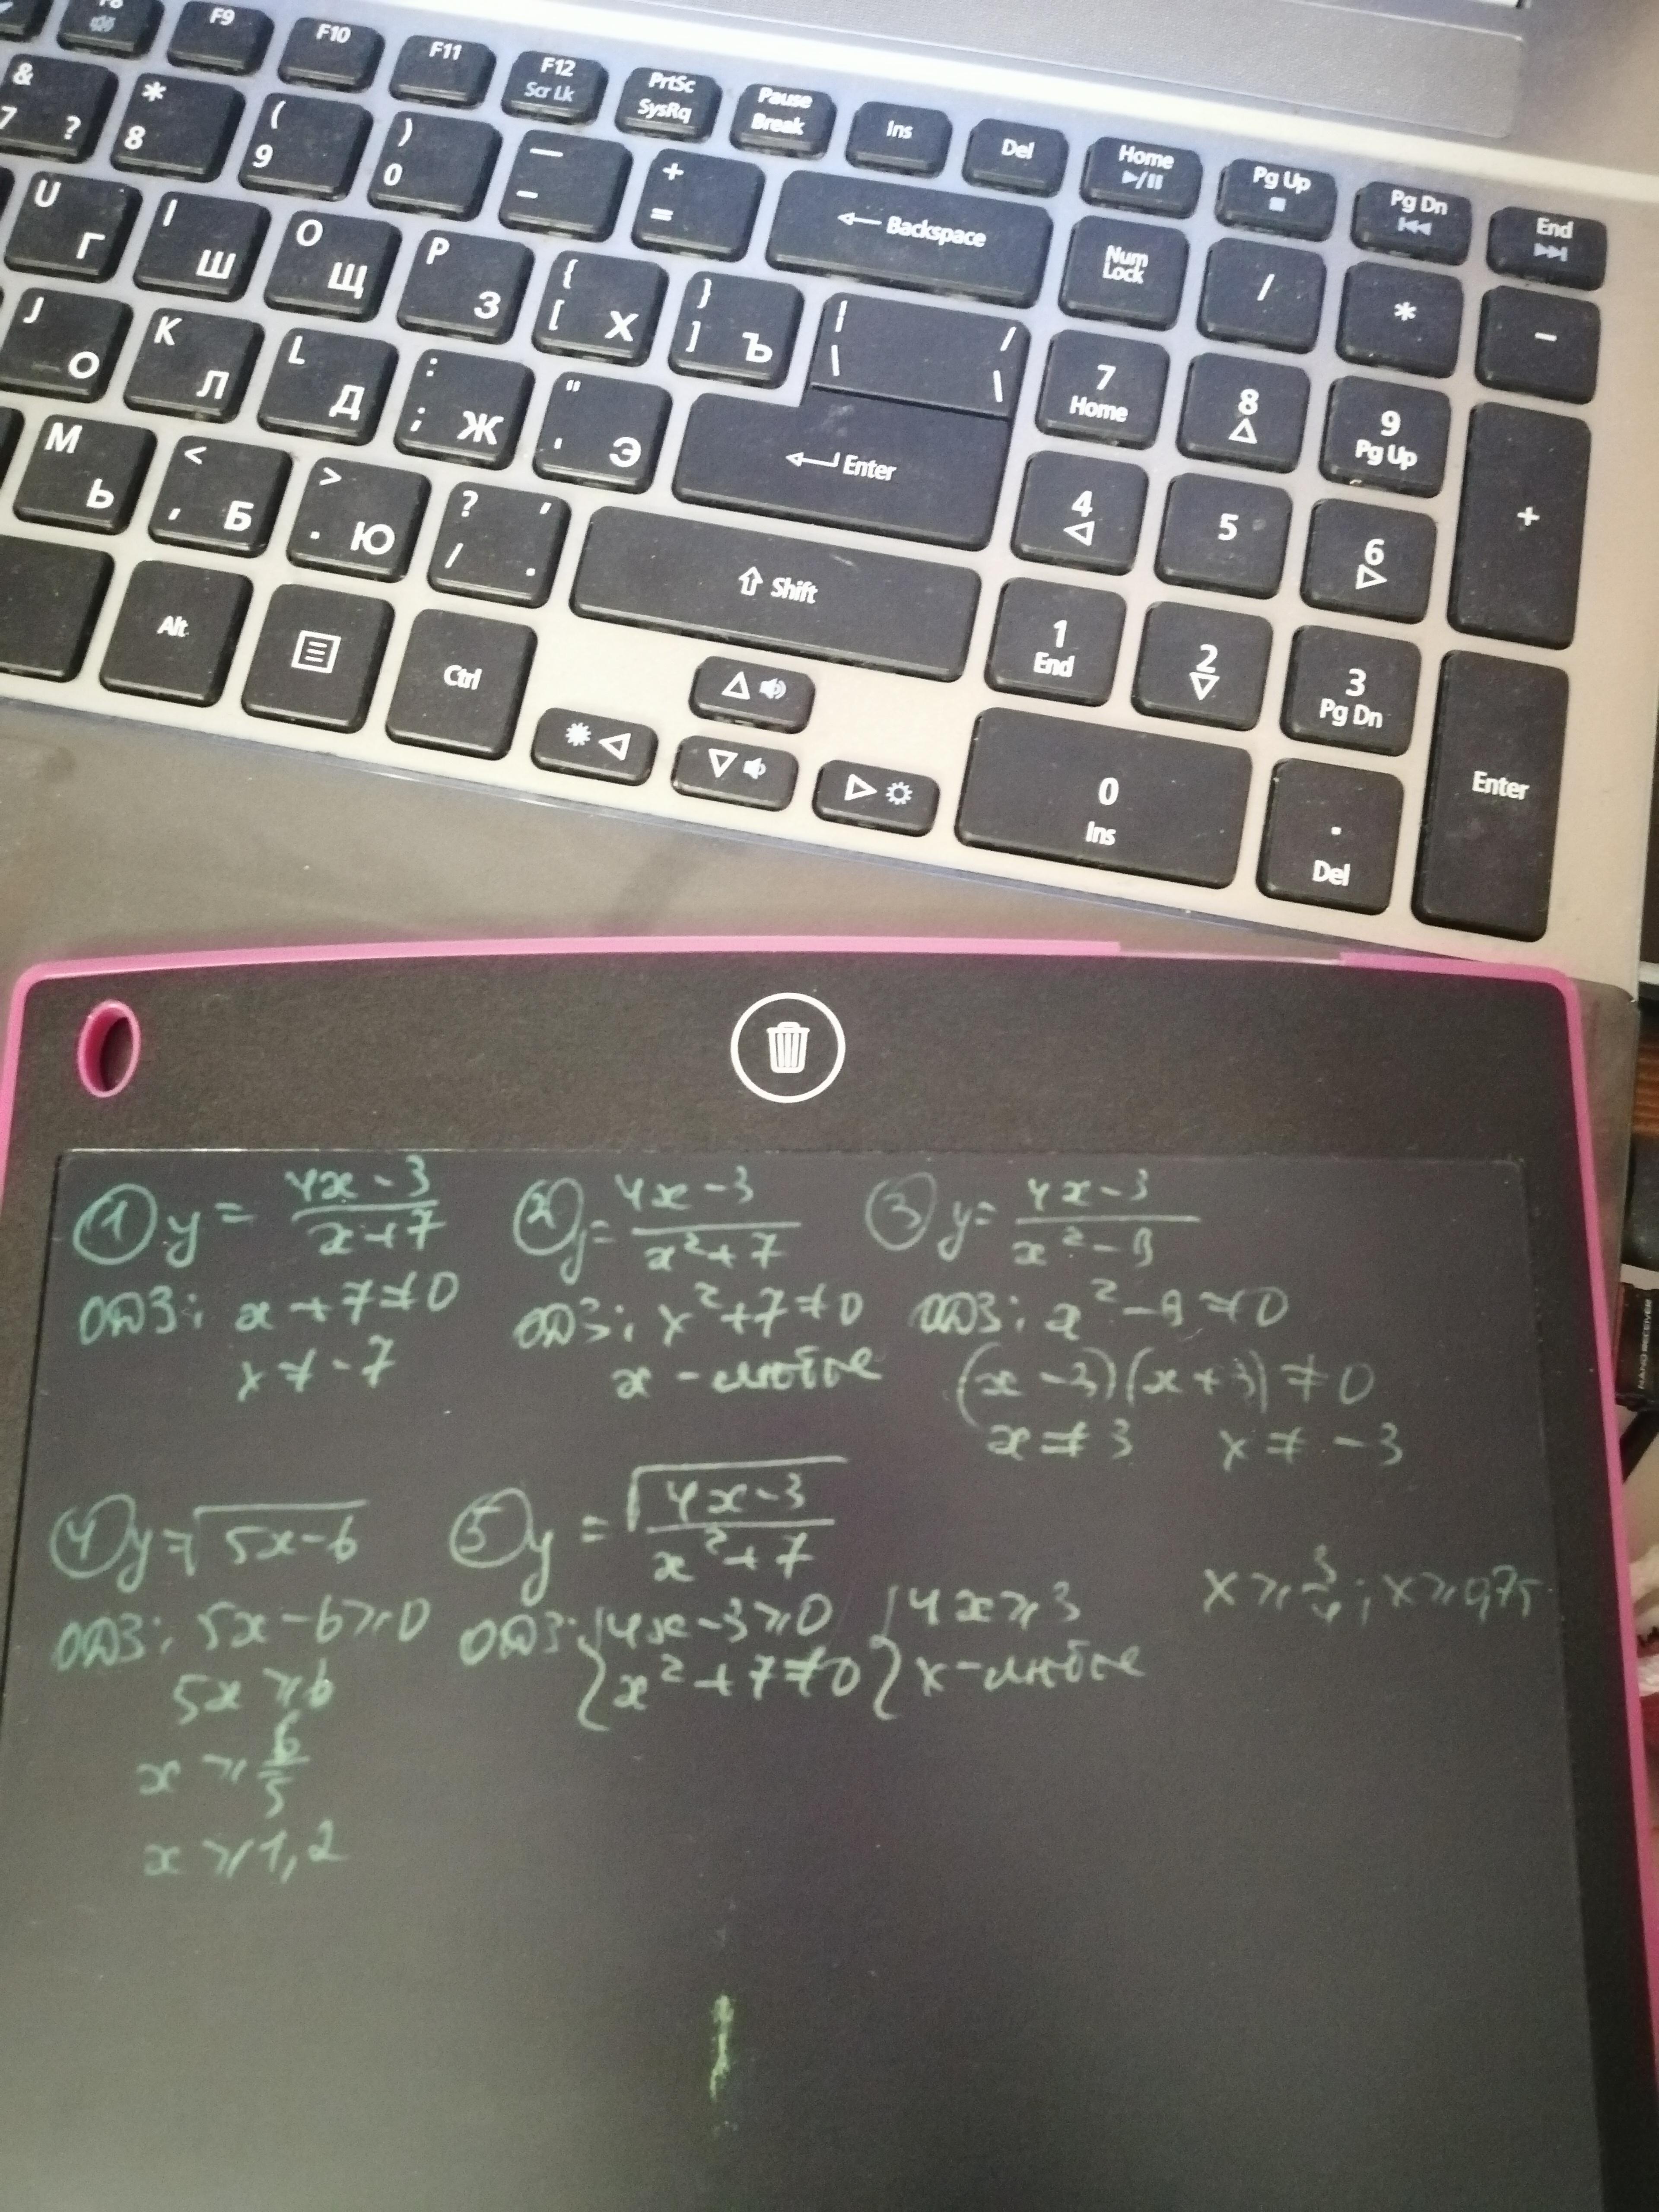 F8 F9 F10 F11 F12 Scr Lk PrtSc SysRq Pause Break Ins Del Home Pg Up Pg Dn End
& 7 ? * 8 ( 9 ) 0 — - + = Backspace Num Lock / * -
U Г I Ш O Щ P З { [ Х } ] Ъ | \ / \ 7 Home 8 9 Pg Up +
J О K Л L Д : ; Ж " ' Э Enter 4 5 6
M Ь < , Б > . Ю ? / , . Shift 1 End 2 3 Pg Dn Enter
Alt Ctrl 0 Ins . Del
NANO RECEIVER
① y = (4x-3)/(x+7)
ОДЗ: x+7≠0
x≠-7
② y = (4x-3)/(x²+7)
ОДЗ: x²+7≠0
x - любое
③ y = (4x-3)/(x²-9)
ОДЗ: x²-9≠0
(x-3)(x+3)≠0
x≠3 x≠-3
④ y=√(5x-6)
ОДЗ: 5x-6⩾0
5x⩾6
x⩾6/5
x⩾1,2
⑤ y = √((4x-3)/(x²+7))
ОДЗ: {4x-3⩾0 {4x⩾3 x⩾3/4; x⩾0,75
{x²+7≠0 {x-любое